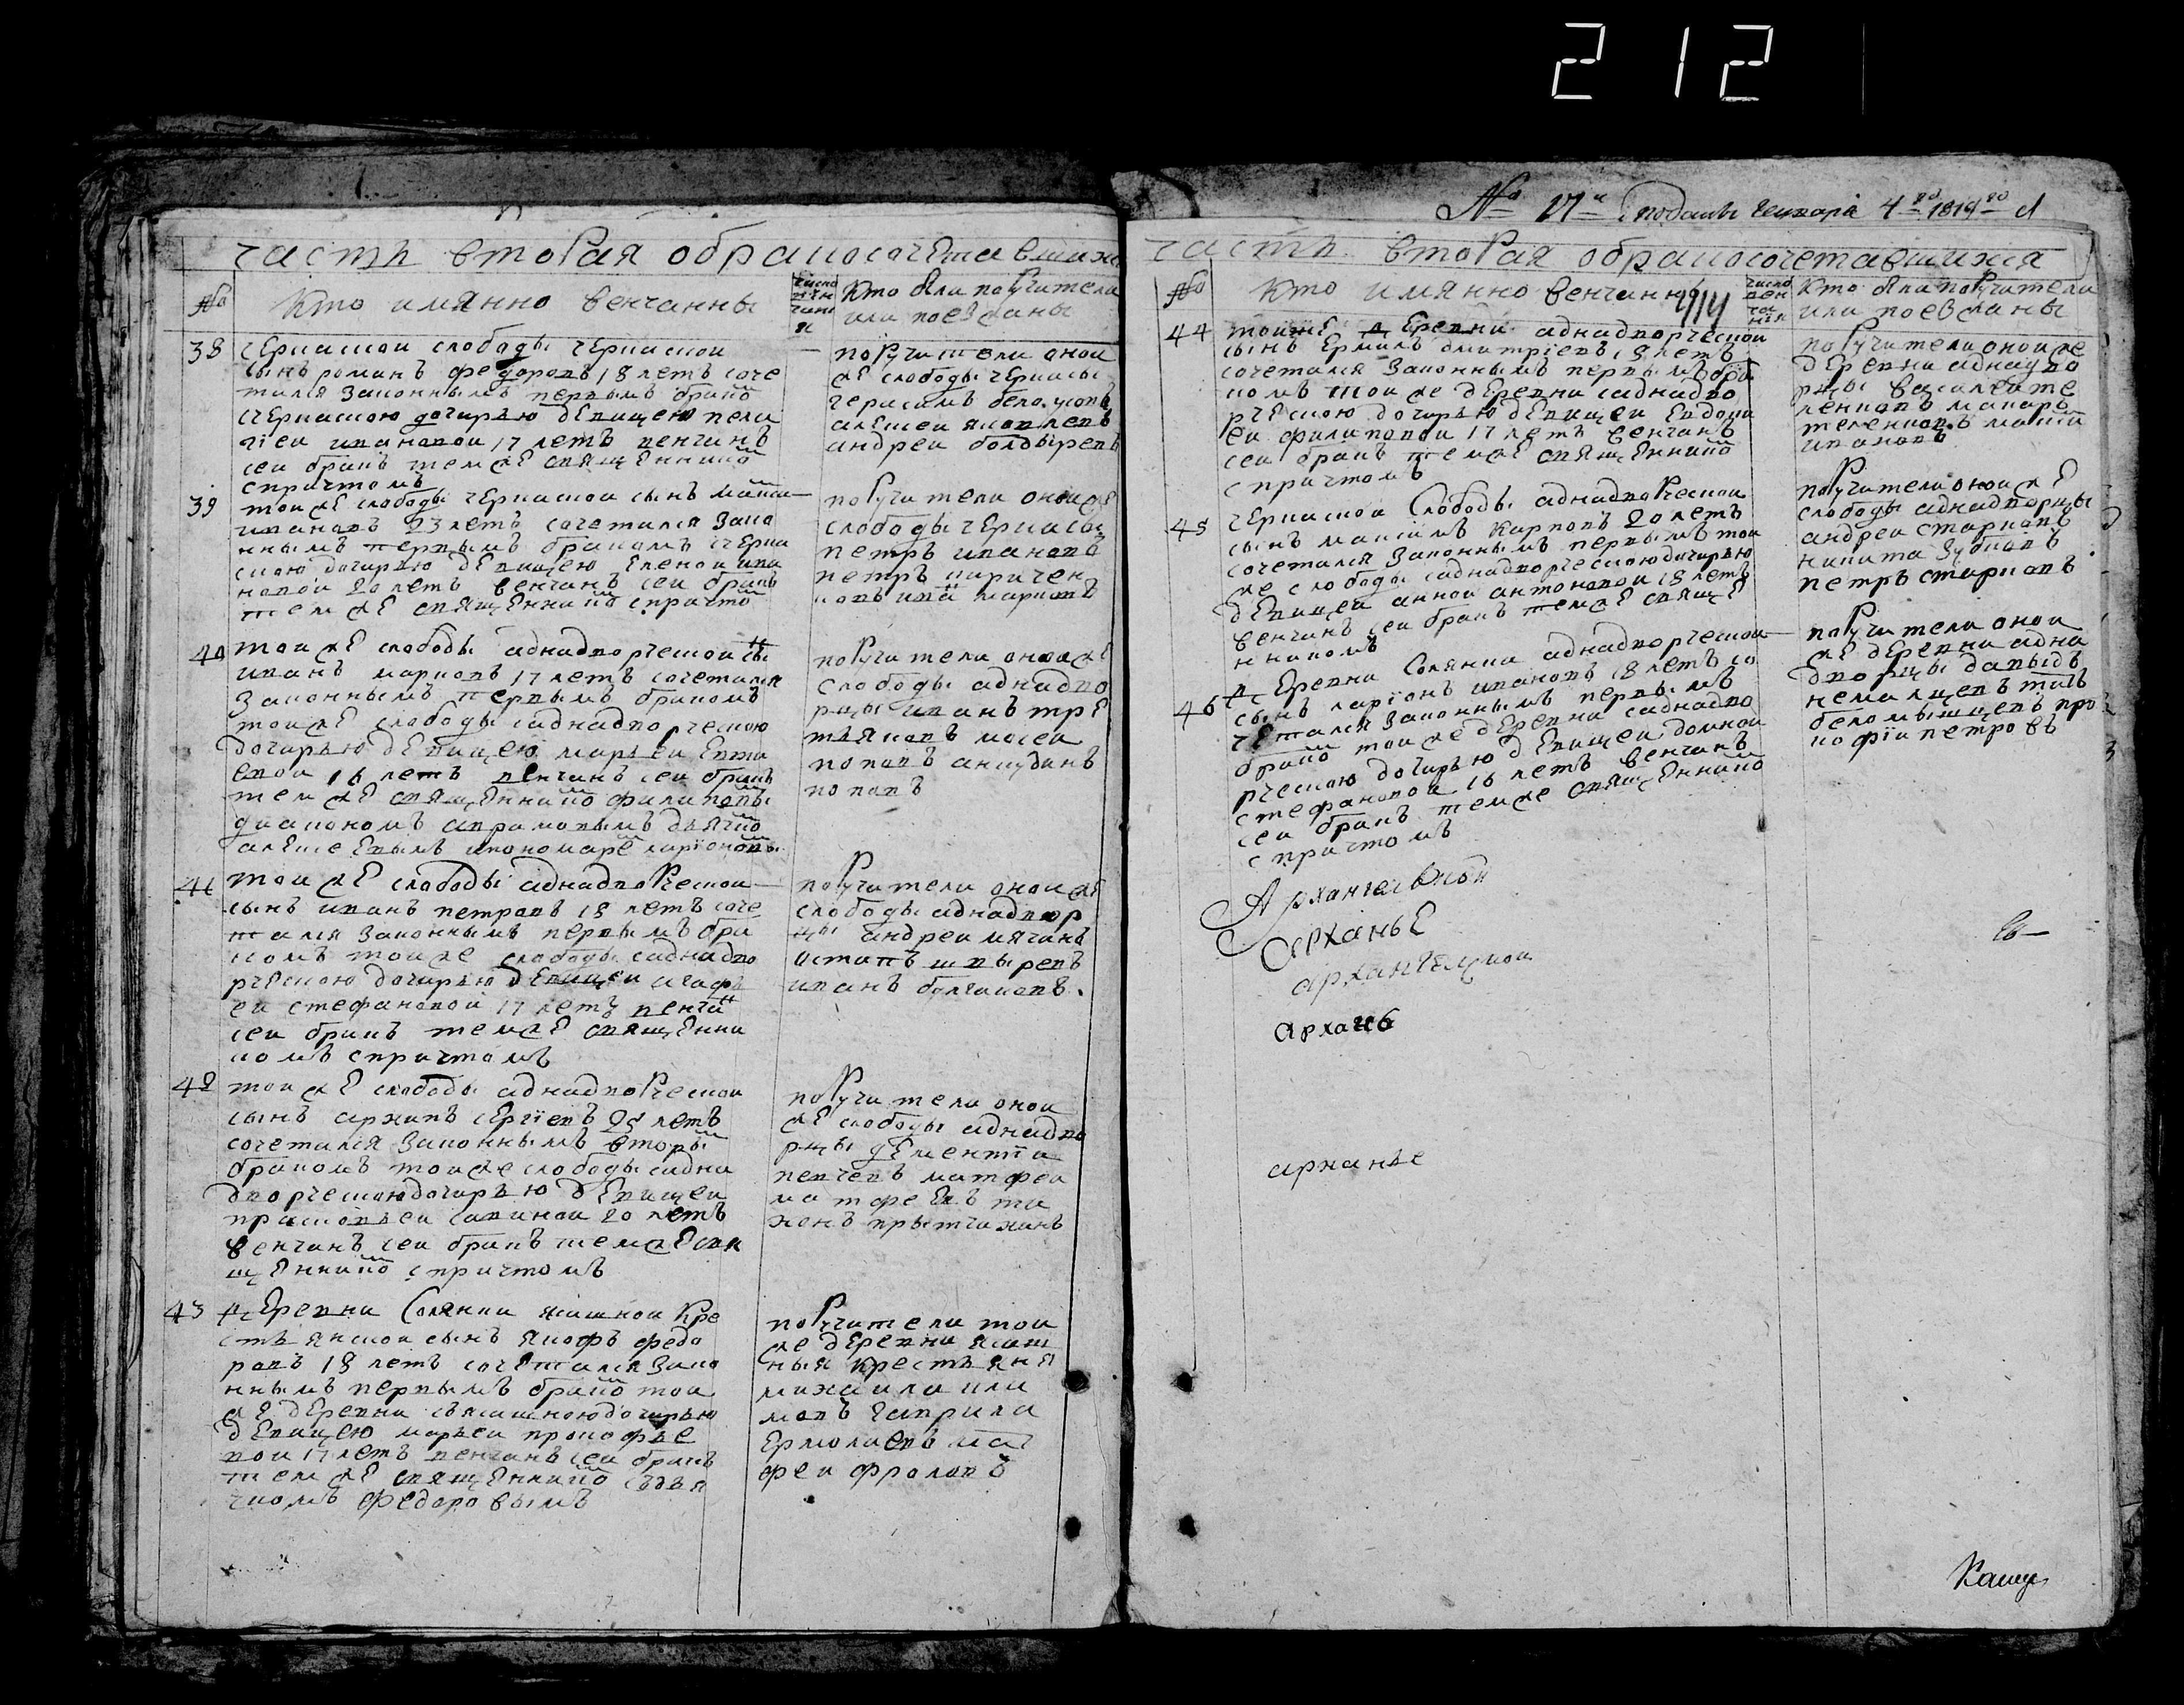 212
часть вторая обракосочетавшихс
№ Кто имянно венчанны
число венчания
Кто были поручители
или поезжаны
38 черкаской слободы черкаской
сынъ романъ федоровъ 18 летъ соче
тался законнымъ первымъ брако
счеркаскою дочирью девицею пела
гіеи ивановои 17 летъ венчанъ
сеи бракъ темже священнико
спричтомъ
поручители оной
же слободы черкасы
герасимъ
алексеи яковлевъ
андреи болдыревъ
39 тоиже слободы черкаскои сынъ
ивановъ 23 летъ сочетался зако
ннымъ первымъ бракомъ счерка
скою дочирью девицею еленои ива
новои 20 летъ венчанъ сеи бракъ
темже священнико спричто
поручители оноиже
слободы черкасы
петръ ивановъ
петръ кириченковъ
марковъ
40 тоиже слободы аднадворческои сы
иванъ марковъ 17 летъ сочетался
законнымъ первымъ бракомъ
тоиже слободы саднадворческою
дочирью девицею марьеи евти
евои 16 летъ венчанъ сеи бракъ
темже священнико филиповы
диакономъ аврамовымъ дьячко
алексеевымъ ипономаре ларіоновы
поручители оноиже
слободы аднадво
рцы иванъ тре
тьяковъ мосеи
поповъ анкудинъ
поповъ
41 тоиже слободы аднадворческои
сынъ иванъ петровъ 18 летъ соче
тался законнымъ первымъ бра
комъ тоиже слободы саднадво
рческою дочирью девицеи агафь
еи стефановои 17 летъ венча
сеи бракъ темже священни
комъ спричтомъ
поручители оноиже
слободы аднадвор
цы андреи мячинъ
остапъ шпыревъ
иванъ булгаковъ.
42 тоиже слободы аднадворческои
сынъ архипъ сергіевъ 25 летъ
сочетался законнымъ вторы
бракомъ тоиже слободы садна
дворческою дочирью девицеи
прасковьеи савинои 20 летъ
венчанъ сеи бракъ темже свя
щеннико спричтомъ
поручители оной
же слободы аднадво
рцы дементи
певчевъ матфеи
матфеевъ ти
хонъ прытчихинъ
43 деревни Солянки ясашнои кре
стьянскои сынъ якофъ федо
ровъ 18 летъ сочетался зако
ннымъ первымъ брако тои
же деревни съясашною дочирью
девицею марьеи прокофье
вои 17 летъ венчанъ сеи бракъ
темже священнико съдья
чкомъ федоровымъ
поручители тои
же деревни ясаш
ныя крестьяня
михаила кли
мовъ гаврила
ермолаевъ мат
феи фроловъ
№ 17 подано генваря 4го 1819го
часть вторая обракосочетавшихся
№ Кто имянно венчанны
число венчания
Кто были поручители
или поезжаны
44 тоиже деревни аднадворческои
сынъ ермилъ дмитріевъ 18 летъ
сочетался законнымъ первымъ бра
комъ тоиже деревни саднадво
рческою дочирью девицеи евдоки
еи филиповои 17 летъ венчанъ
сеи бракъ темже священнико
спричтомъ
поручители оноиже
деревни аднадво
рцы василеи те
лениковъ макаръ
телениковъ
ивановъ
45 черкаскои слободы аднадворческои
сынъ максімъ карповъ 20 летъ
сочетался законнымъ первымъ тои
же слободы саднадворческою дочирью
девицеи аннои антоновои 18 летъ
венчанъ сеи бракъ темже свяще
нникомъ
поручители оноиже
слободы аднадворцы
андреи старковъ
никита зубковъ
петръ старковъ
46 деревни Солянки аднадворческои
сынъ ларіонъ ивановъ 18 летъ со
четался законнымъ первымъ
брако тоиже деревни саднадво
рческою дочирью девицеи домнои
стефановои 16 летъ венчанъ
сеи бракъ темже священнико
спричтомъ
поручители оной
же деревни адна
дворцы давыдъ
немальцевъ титъ
беломытцевъ про
кофіи петровъ
Архангельской
арханье
архангелскои
архань
арханье